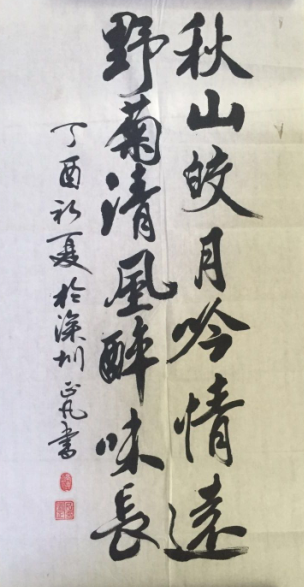 秋山皎月吟情遠
野菊清風醉味長
丁酉初夏於深圳正凡書